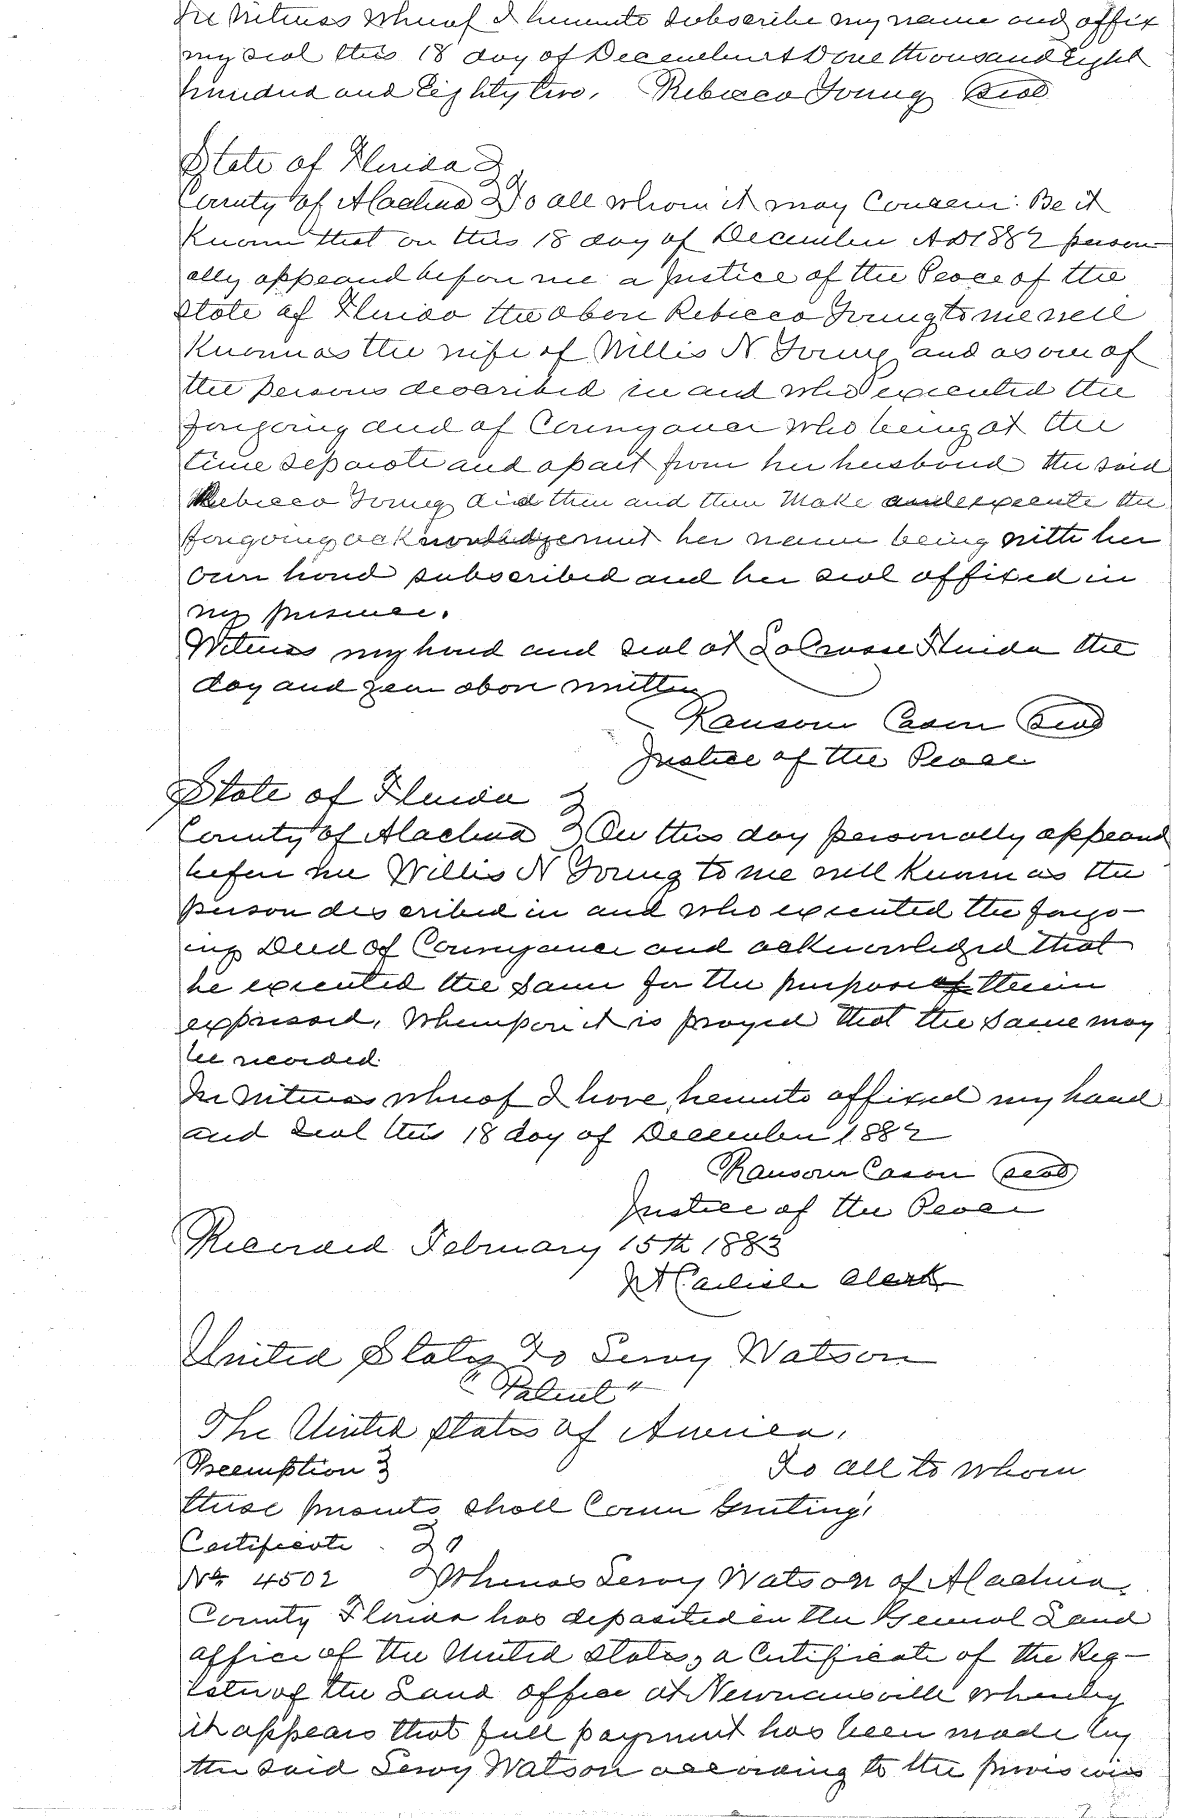 In Witness whereof I hereunto subscribe my name and affix
my seal this 18 day of December A D one thousand Eight
hundred and Eighty two. Rebecca Young Seal
State of Florida
County of Alachua To all whom it may Concern: Be it
Known that on this 18 day of December AD 1882 person-
ally appeared before me a Justice of the Peace of the
State of Florida the above Rebecca Young to me well
Known as the wife of Willis N Young and as one of
the persons described in and who executed the
foregoing deed of Conveyance who being at the
time separate and apart from her husband the said
Rebecca Young did then and there Make and execute the
foregoing acknowledgement her name being with her
own hand subscribed and her seal affixed in
my presence.
Witness my hand and seal at LaCrosse Florida the
day and year above written
Ransom Cason Seal
Justice of the Peace
State of Florida
County of Alachua On this day personally appeared
before me Willis N Young to me well Known as the
person described in and who executed the forgo-
ing Deed of Conveyance and acknowledged that
he executed the same for the purpose of therein
expressed, Whereupon it is prayed that the same may
be recorded.
In Witness whereof I have hereunto affixed my hand
and seal this 18 day of December 1882
Ransom Cason Seal
Justice of the Peace
Recorded February 15th 1883
Carlisle Clerk
United States To Leroy Watson
"Patent"
The United States of America,
Preemption To all to whom
these presents shall Come Greeting!
Certificate
No 4502 Whereas Leroy Watson of Alachua
County Florida has deposited in the General Land
office of the United States, a Certificate of the Reg-
ister of the Land office at Newnansville whereby
it appears that full payment has been made by
the said Leroy Watson according to the provisions